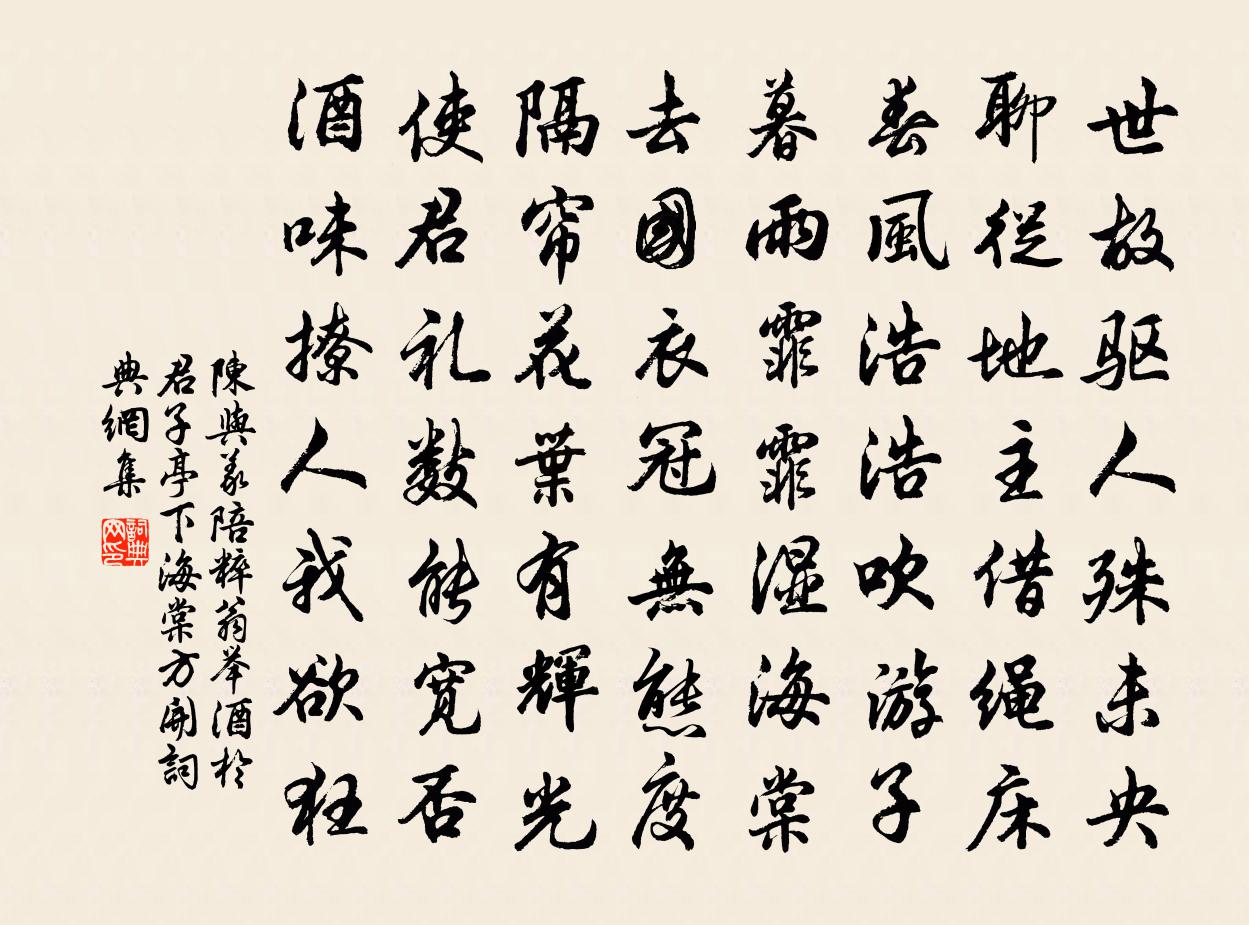 世故驱人殊未央
聊從地主借绳床
春風浩浩吹游子
暮雨霏霏濕海棠
去國衣冠無態度
隔帘花葉有輝光
使君礼數能寬否
酒味撩人我欲狂
陳與義陪粹翁举酒於
君子亭下海棠方開詞
典網集
詞典
网印